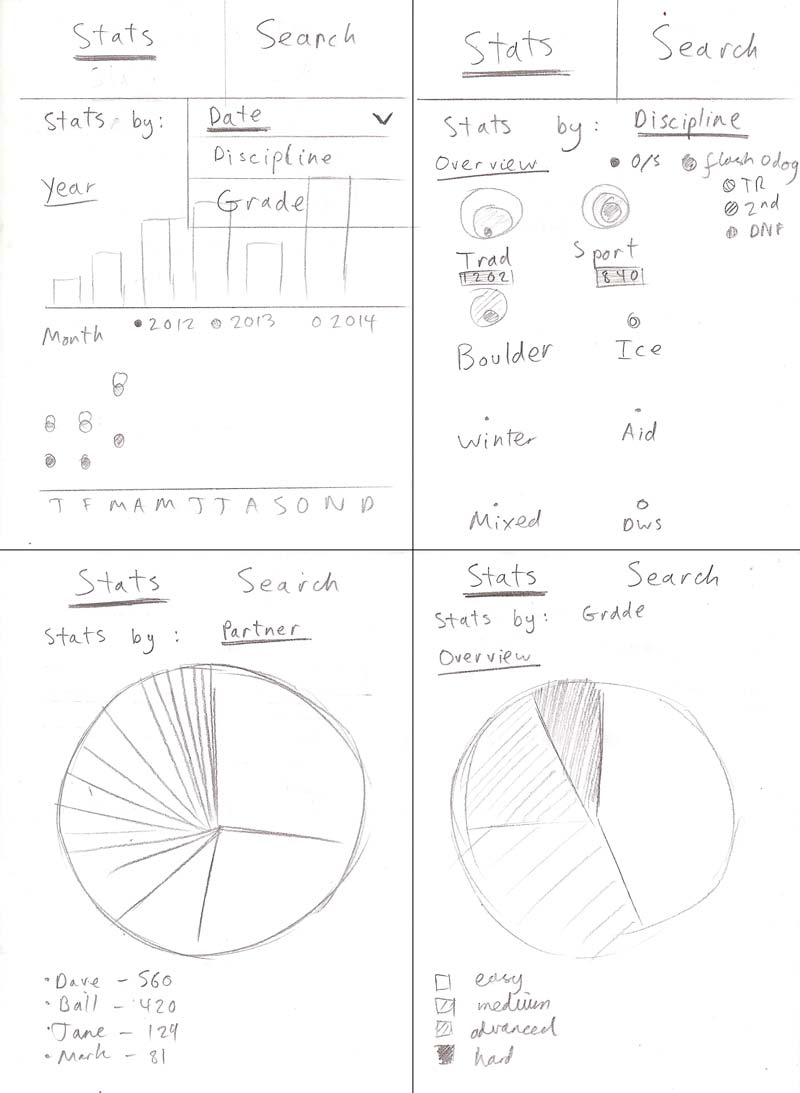 Stats Search
Stats by: Date
Discipline
Grade
Year
Month 2012 2013 2014
J F M A M J J A S O N D
Stats Search
Stats by: Discipline
Overview O/S flash Odog
TR
2nd
DNF
Trad Sport
1202 840
Boulder Ice
Winter Aid
Mixed DWS
Stats Search
Stats by: Partner
Dave - 560
Ball - 420
Jane - 124
Mark - 81
Stats Search
Stats by: Grade
Overview
easy
medium
advanced
hard